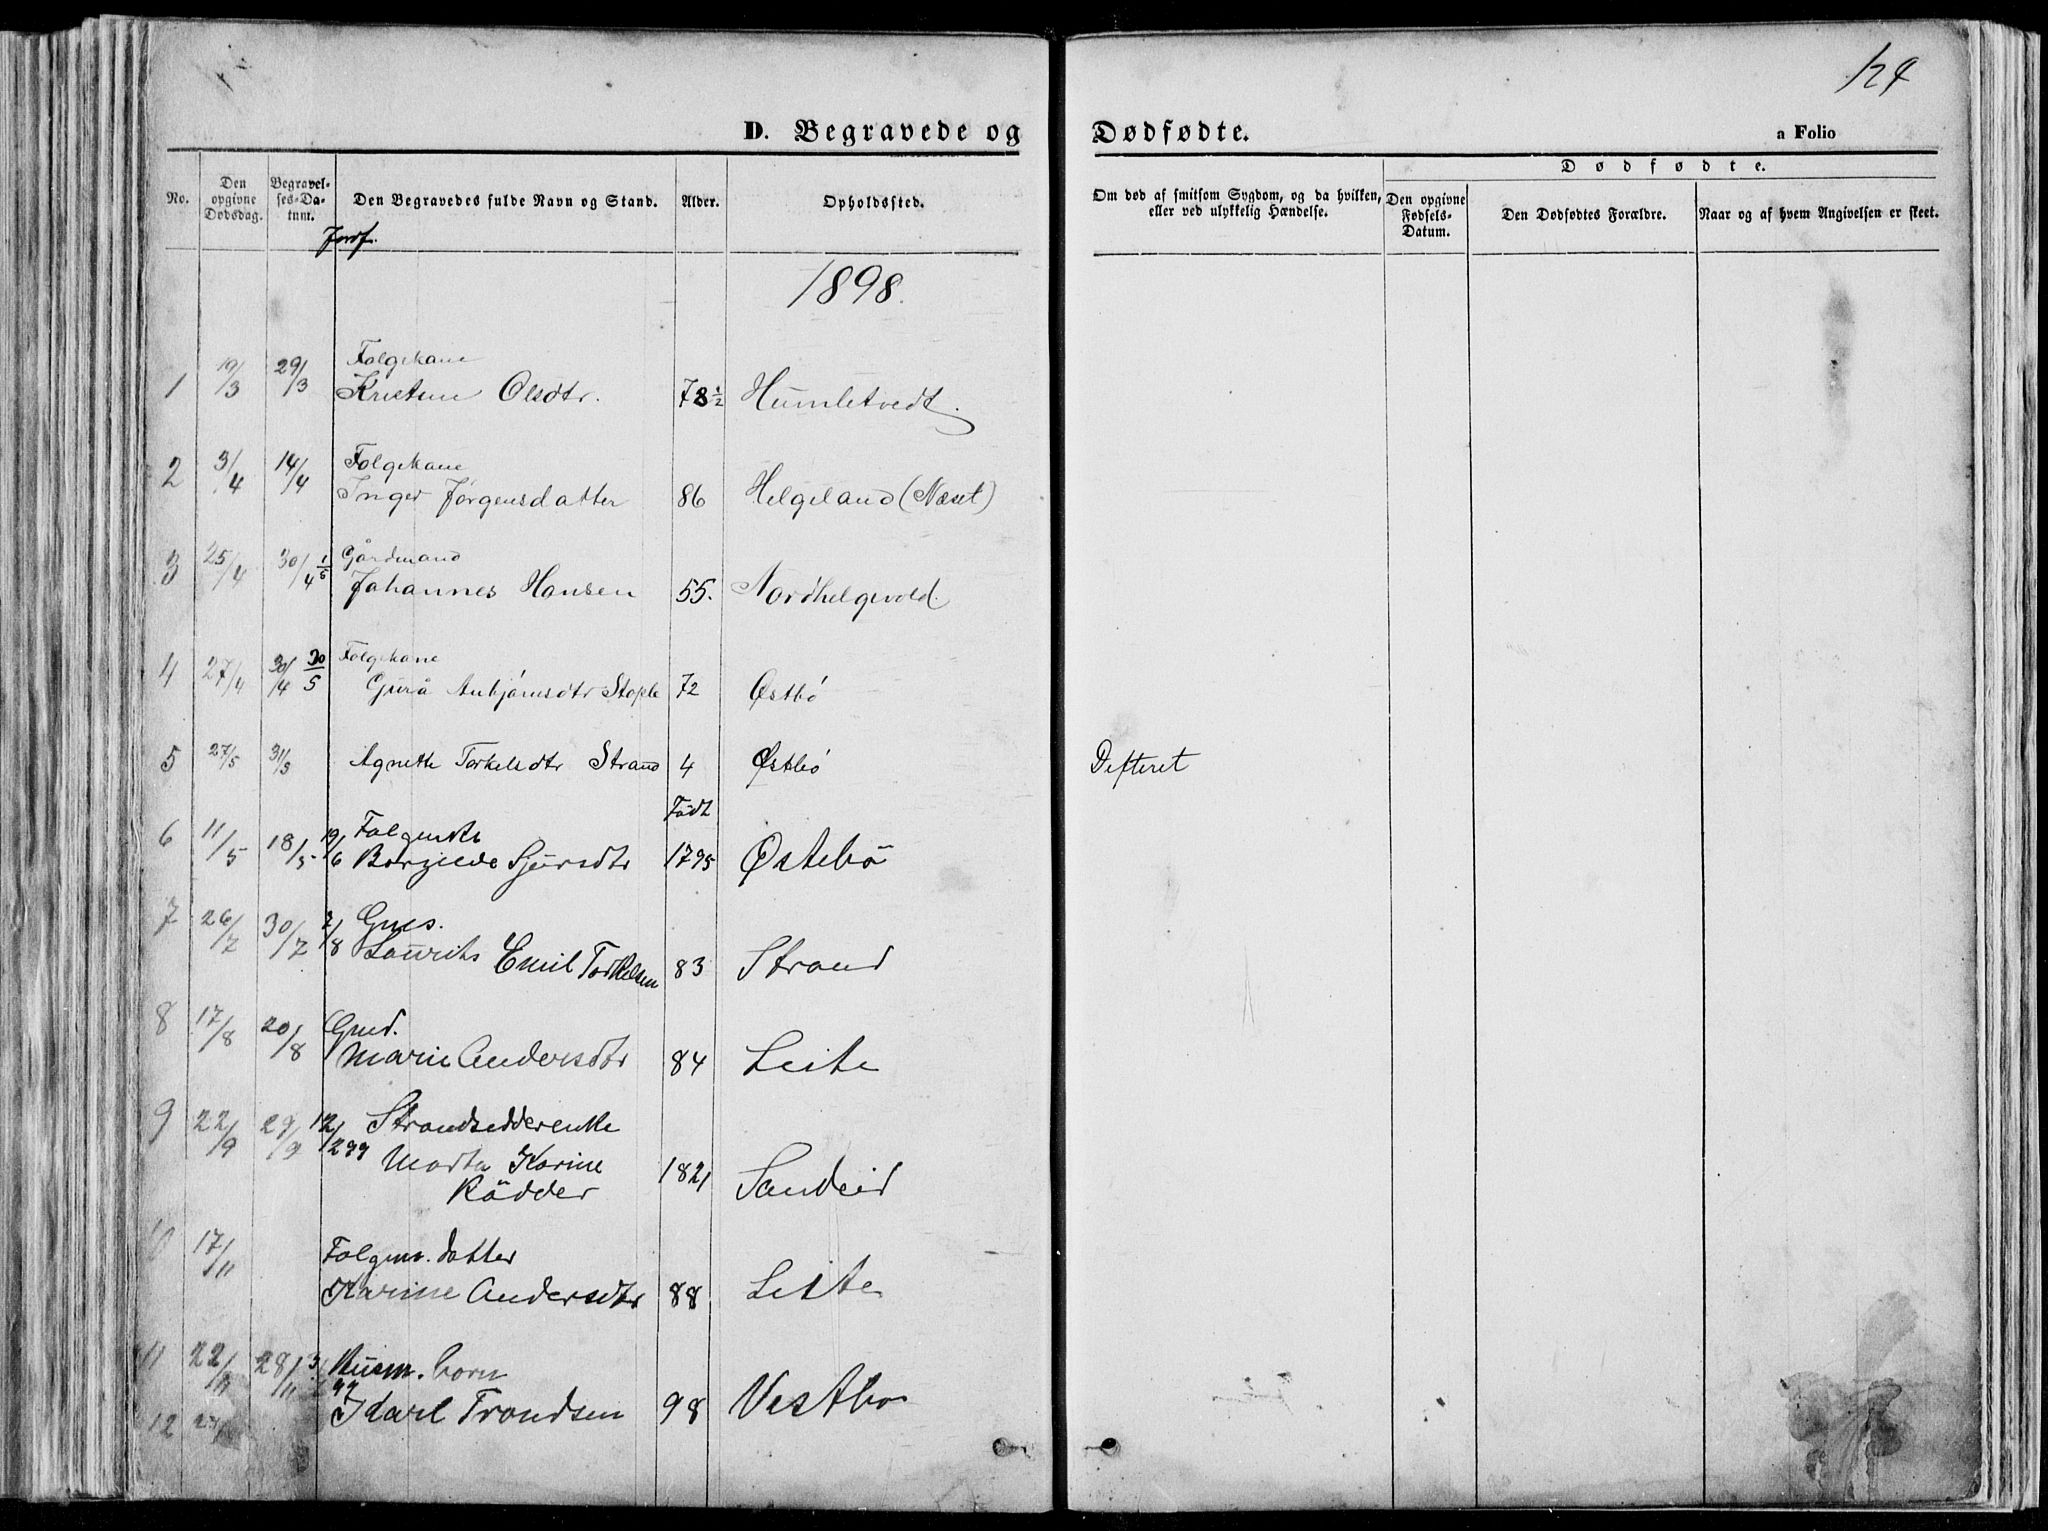 124
D. Begravede og Dødfødte.
a Folio
No.
Den opgivne Dødsdag.
Begravelses-Datum.
Jordf.
Den Begravedes fulde Navn og Stand.
Alder.
Opholdssted.
Om død af smitsom Sygdom, og da hvilken, eller ved ulykkelig Hændelse.
Dødfødte.
Den opgivne Fødsels-Datum.
Den Dødfødtes Forældre.
Naar og af hvem Angivelsen er skeet.
1898.
Folgekone
1 19/3 29/3 Kristine Olsdtr. 78½ Humletvedt.
Folgekone
2 3/4 14/4 Inger Jørgensdatter 86 Helgeland (Næset)
Gårdmand
3 25/4 30/4 1/5 Johannes Hansen 55. Nordhelgevold.
Folgekone
4 27/4 30/4 30/5 Gurå Anbjørnsdtr Stople 72 Østbö
5 27/5 31/5 Agnette Torkelsdtr Strand 4 Østbö Difteret
Født
6 11/5 18/5 19/6 Folgenke
Borgilde Sjursdtr 1795 Østebö
7 26/7 30/7 2/8 Gmes.
Laurits Emil Torkelsen 83 Strand
8 17/8 20/8 Gmd.
Marie Andersdtr 84 Leite
9 22/9 29/9 12/2 99 Strandsidderenke
Marta Karine 1821 Sandeid
Rödder
10 17/11 Folgem. datter
Karine Andersdtr 88 Leite
11 22/11 28/11 Husm. barn
99
Karl Trondsen 98 Vestbø
12